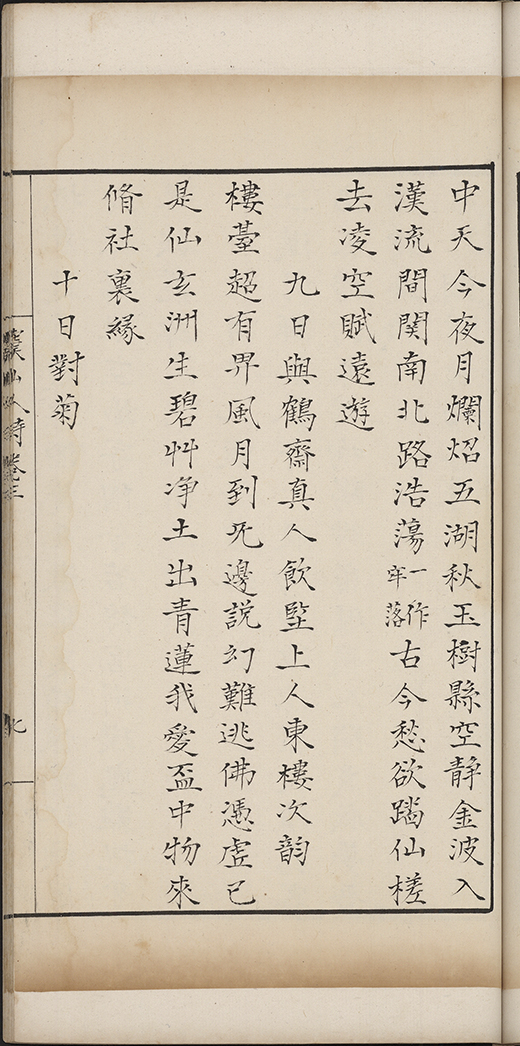 中天今夜月爛炤五湖秋玉樹縣空静金波入
漢流間関南北路浩蕩一作牢落古今愁欲蹋仙槎
去凌空賦遠遊
九日與鶴齋真人飲堅上人東樓次韵
樓臺超有界風月到无邊說幻難逃佛憑虛已
是仙玄洲生碧艸净土出青蓮我愛盃中物來
脩社裏緣
十日對菊
人詩卷三